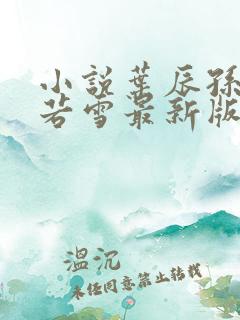 小说叶辰孙
若雪最新版
温沉
未经同意禁止转载